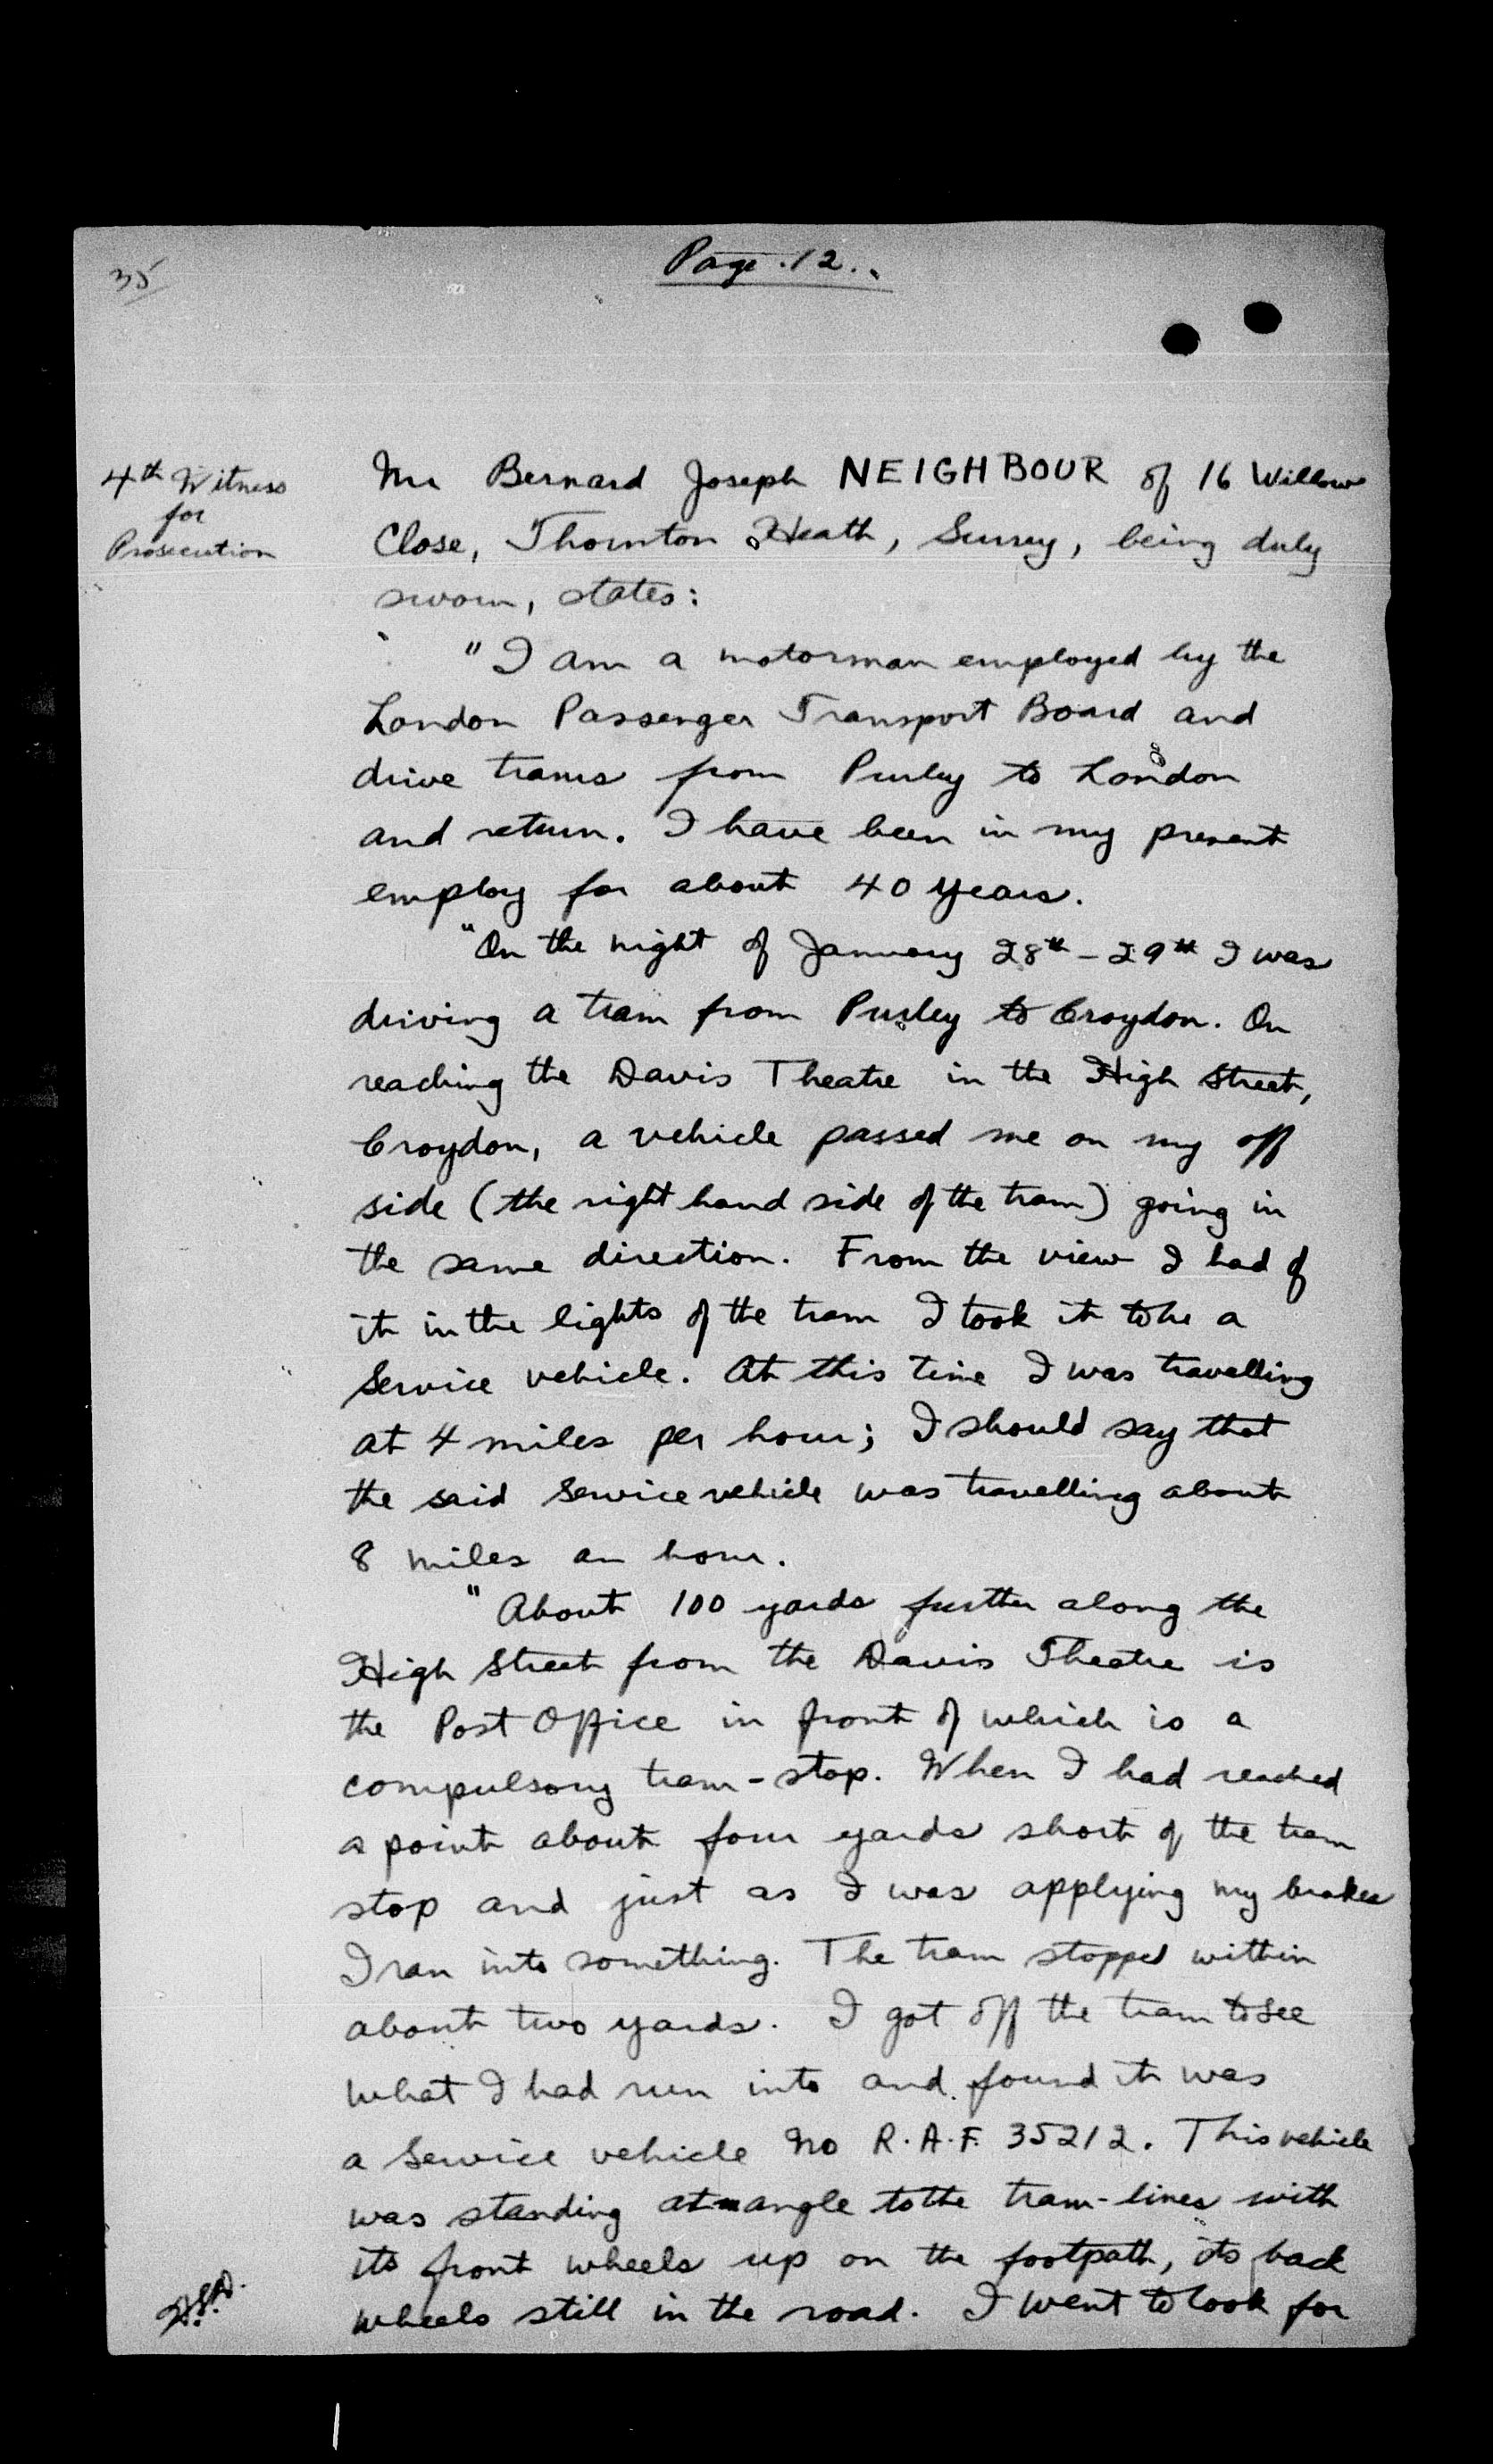 35
Page. 12.
4th Witness
for
Prosecution
Mr Bernard Joseph NEIGHBOUR of 16 Willow
Close, Thornton Heath, Surrey, being duly
sworn, states:
"I am a motorman employed by the
London Passenger Transport Board and
drive trams from Purley to London
and return. I have been in my present
employ for about 40 years.
"On the night of January 28th - 29th I was
driving a tram from Purley to Croydon. On
reaching the Davis Theatre in the High Street,
Croydon, a vehicle passed me on my off
side (the right hand side of the tram) going in
the same direction. From the view I had of
it in the lights of the tram I took it to be a
Service vehicle. At this time I was travelling
at 4 miles per hour; I should say that
the said Service vehicle was travelling about
8 miles an hour.
"About 100 yards further along the
High Street from the Davis Theatre is
the Post Office in front of which is a
compulsory tram-stop. When I had reached
a point about four yards short of the tram
stop and just as I was applying my brakes
I ran into something. The tram stopped within
about two yards. I got off the tram to see
what I had run into and found it was
a Service vehicle No R.A.F. 35212. This vehicle
was standing at an angle to the tram-lines with
its front wheels up on the footpath, its back
wheels still in the road. I went to look for